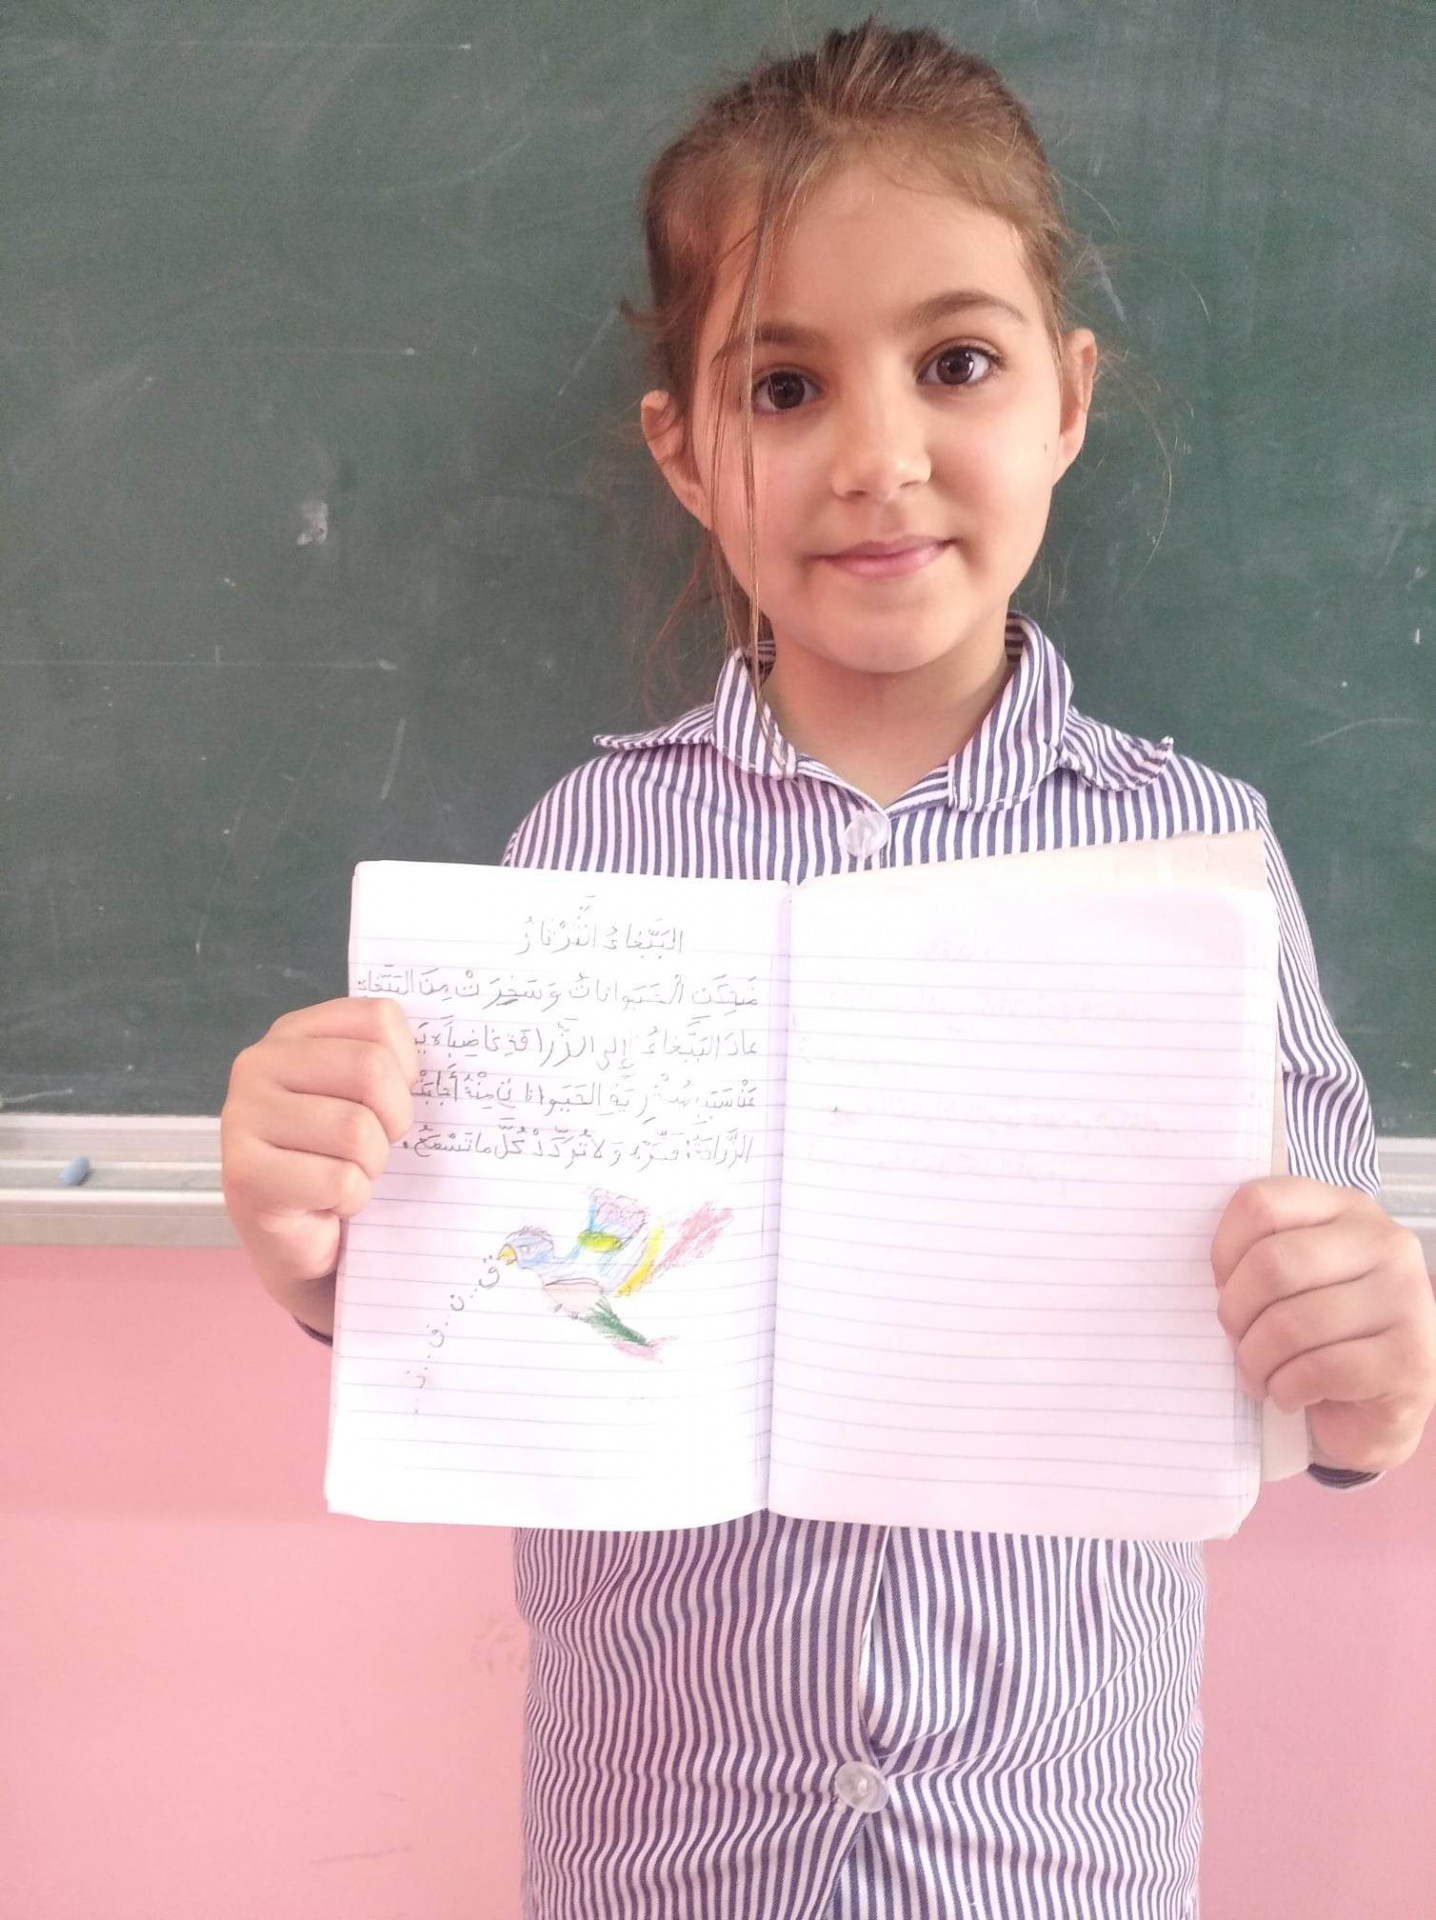 البَبَّغاءُ الثَّرْثارُ
ضَحِكَتِ الْحَيَواناتُ وَسَخِرَتْ مِنَ البَبَّغاءِ
عادَ البَبَّغاءُ إِلى الزَّرافَةِ غاضِباً
سُخْرِيَةِ الحَيَواناتِ مِنْهُ أَجابَتْ
الزَّرافَةُ: وَلا تُرَدِّدْ كُلَّ ما تَسْمَعُ.
ق..ن..ق..ن...